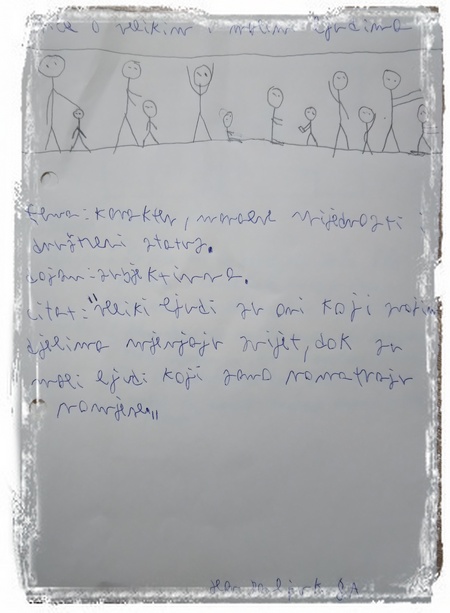 o velikim i malim ljudima
tema: karakter, moralne vrijednosti i
društveni status.
dojam: subjektivna.
citat: "veliki ljudi su oni koji svojim
djelima mjenjaju svijet, dok su
mali ljudi koji samo promatraju
promjene"